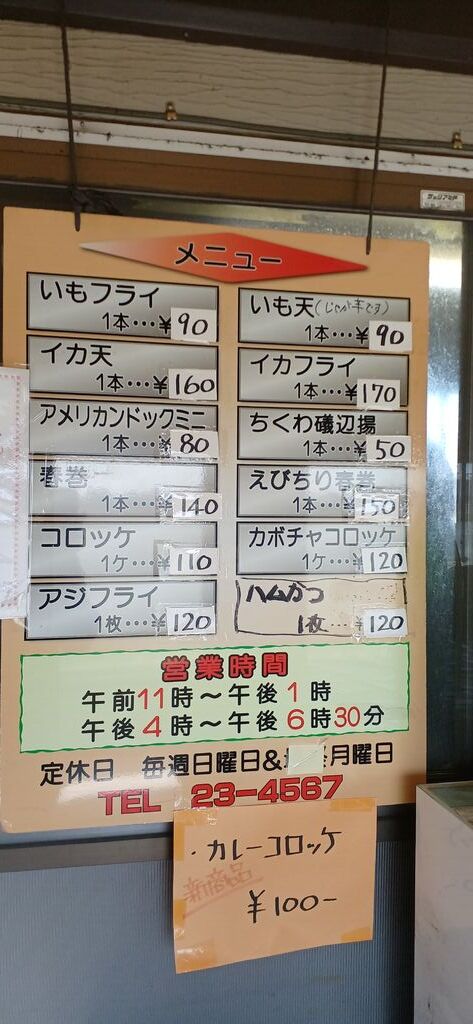 メニュー
いもフライ
1本…¥90
いも天(じゃが芋です)
1本…¥90
イカ天
1本…¥160
イカフライ
1本…¥170
アメリカンドックミニ
1本…¥80
ちくわ磯辺揚
1本…¥50
春巻
1本…¥140
えびちり春巻
1本…¥150
コロッケ
1ケ…¥110
カボチャコロッケ
1ケ…¥120
アジフライ
1枚…¥120
ハムかつ
1枚…¥120
営業時間
午前11時～午後1時
午後4時～午後6時30分
定休日 毎週日曜日& 月曜日
TEL 23-4567
・カレーコロッケ
新商品
¥100-